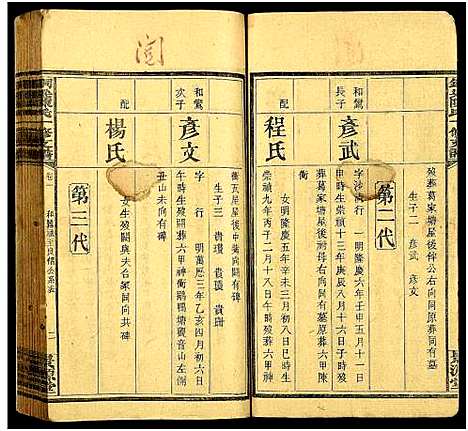 殁葬葛家塘屋後侔公右向同原葬同有碑
生子二 彥武 彥文
第二代
和鸞長子
彥武
字 行 一 明隆慶六年壬申五月十一日
申時生崇禎十三年庚辰八月十六日子時殁
葬葛家塘屋後祔母右向同有墓
配
程氏
女明隆慶五年辛未三月初八日巳時生
崇禎九年丙子二月十八日午時殁葬六甲陳
衝瓦屋屋後中葬向同有碑
生子三 貴瓊 貴璞 貴珊
和鸞次子
彥文
字 行 明萬曆三年乙亥四月初六日
午時生殁葬六甲神衝鵝鴨塘觀音山左側
丑山未向有碑
配
楊氏
女生殁闕與夫合冢同向共碑
第三代